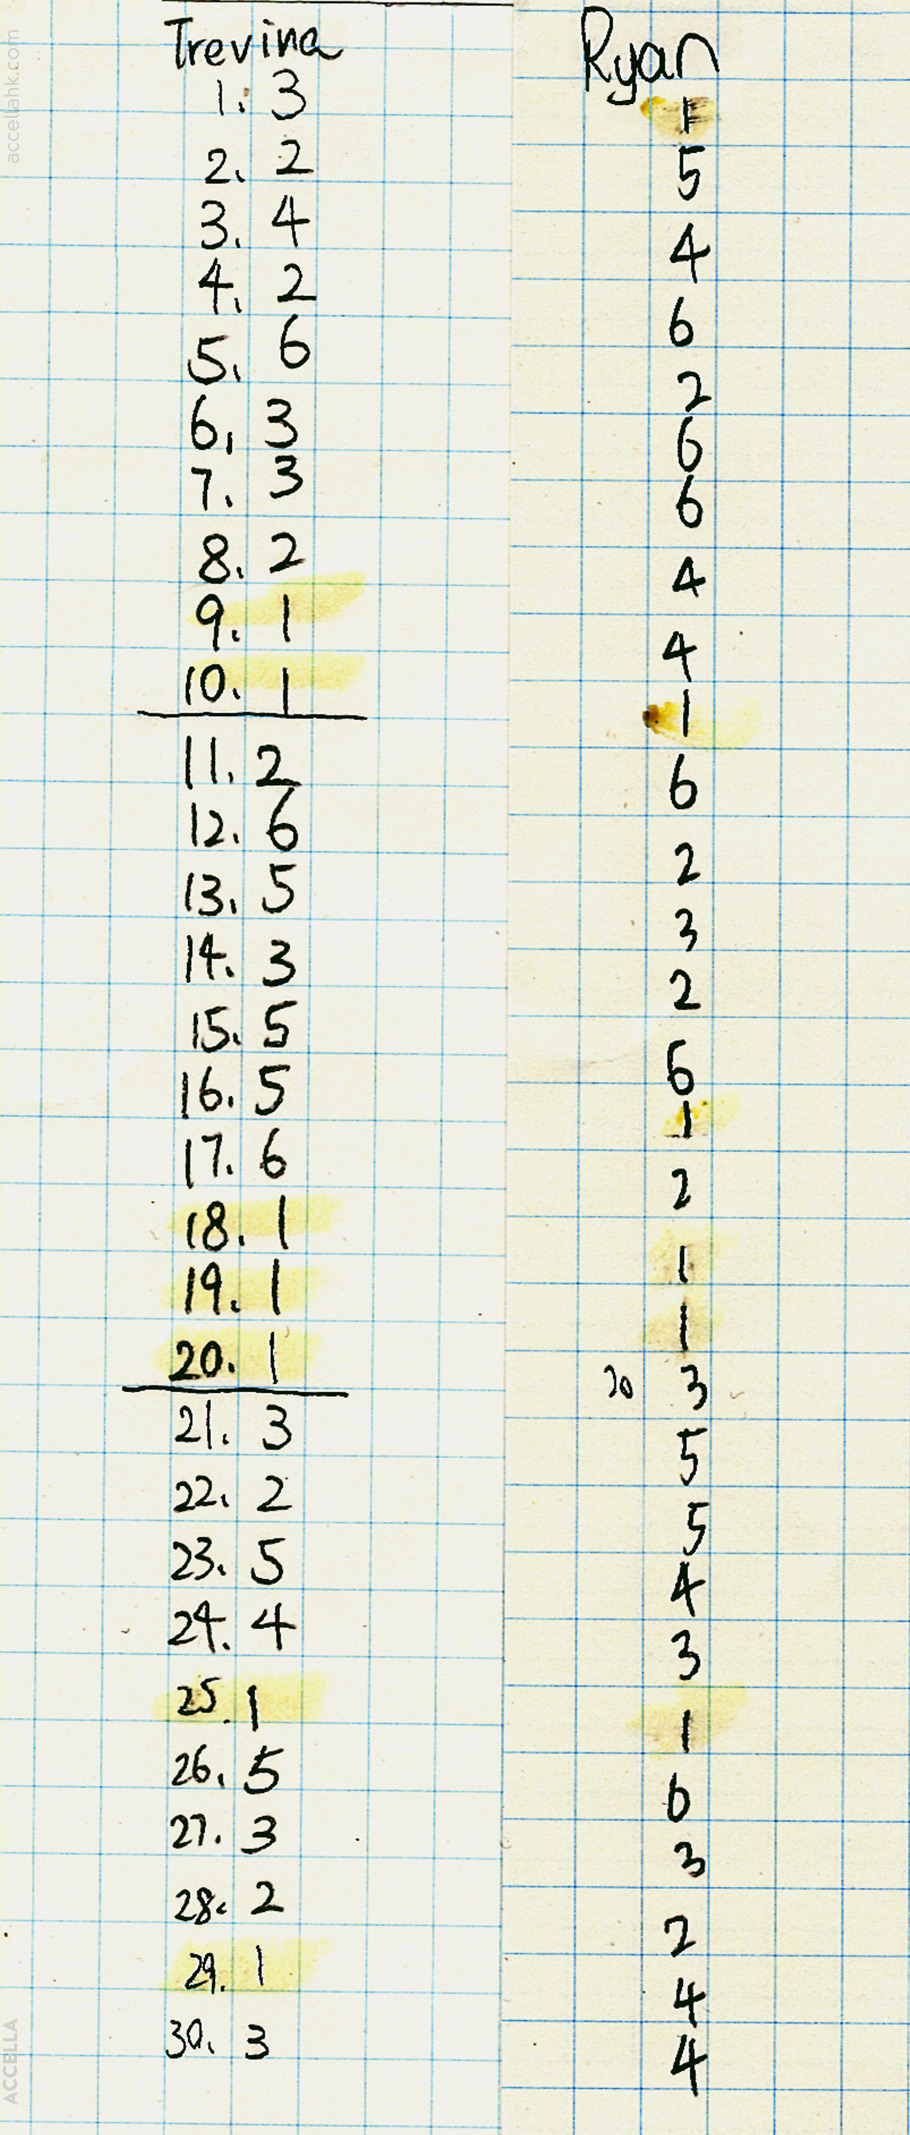 accellahk.com
Trevina
1. 3
2. 2
3. 4
4. 2
5. 6
6. 3
7. 3
8. 2
9. 1
10. 1
11. 2
12. 6
13. 5
14. 3
15. 5
16. 5
17. 6
18. 1
19. 1
20. 1
21. 3
22. 2
23. 5
24. 4
25. 1
26. 5
27. 3
28. 2
29. 1
30. 3
ACCELLA
Ryan
1
5
4
6
2
6
6
4
4
1
6
2
3
2
6
1
2
1
1
20 3
5
5
4
3
1
6
3
2
4
4